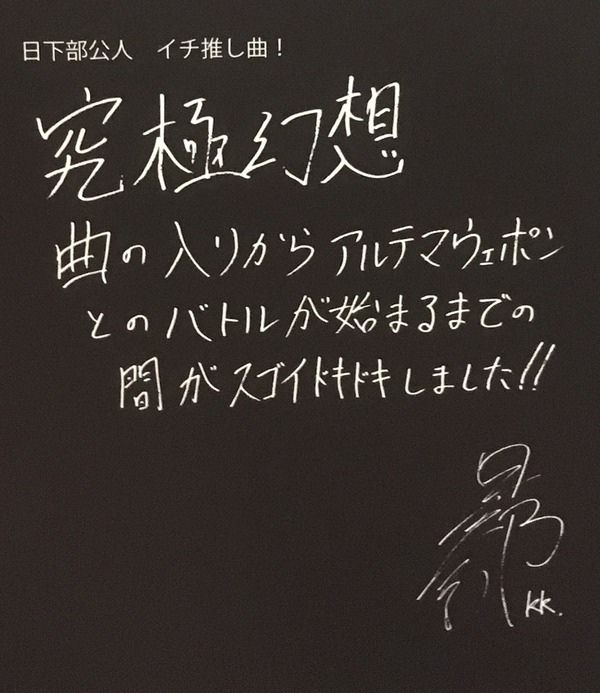 日下部公人　イチ推し曲！
究極幻想
曲の入りからアルテマウェポン
とのバトルが始まるまでの
間がスゴイドキドキしました!!
kk.